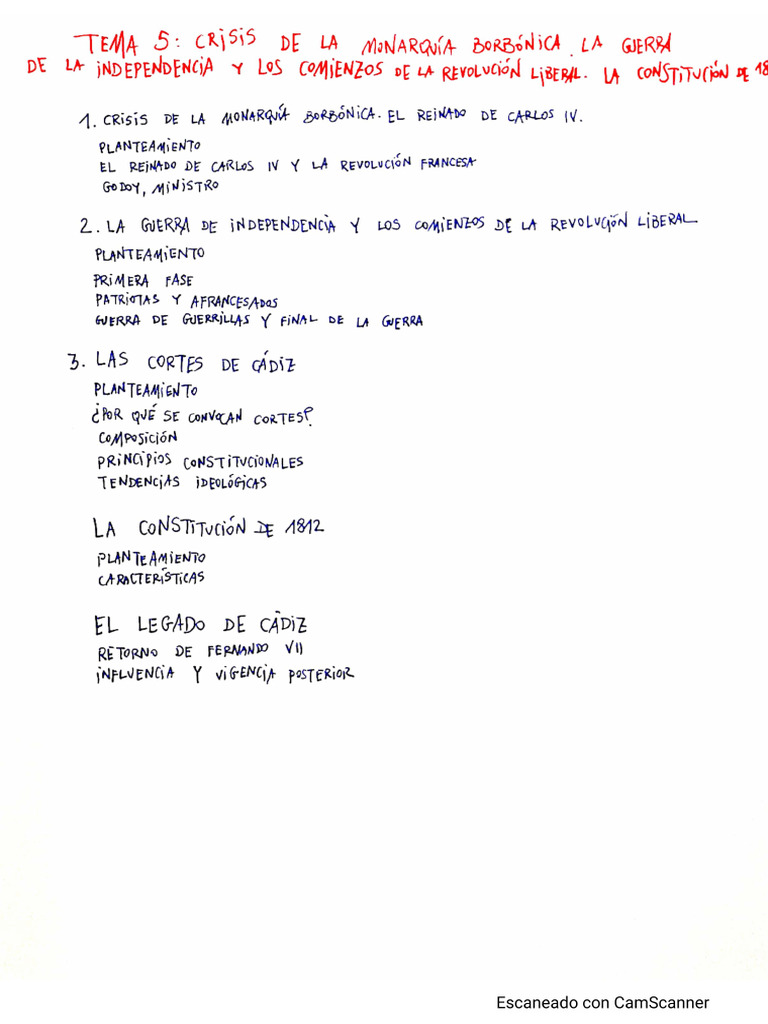 TEMA 5: CRISIS DE LA MONARQUÍA BORBÓNICA. LA GUERRA
DE LA INDEPENDENCIA Y LOS COMIENZOS DE LA REVOLUCIÓN LIBERAL. LA CONSTITUCIÓN DE 18
1. CRISIS DE LA MONARQUÍA BORBÓNICA. EL REINADO DE CARLOS IV.
PLANTEAMIENTO
EL REINADO DE CARLOS IV Y LA REVOLUCIÓN FRANCESA
GODOY, MINISTRO
2. LA GUERRA DE INDEPENDENCIA Y LOS COMIENZOS DE LA REVOLUCIÓN LIBERAL
PLANTEAMIENTO
PRIMERA FASE
PATRIOTAS Y AFRANCESADOS
GUERRA DE GUERRILLAS Y FINAL DE LA GUERRA
3. LAS CORTES DE CÁDIZ
PLANTEAMIENTO
¿POR QUÉ SE CONVOCAN CORTES?
COMPOSICIÓN
PRINCIPIOS CONSTITUCIONALES
TENDENCIAS IDEOLÓGICAS
LA CONSTITUCIÓN DE 1812
PLANTEAMIENTO
CARACTERÍSTICAS
EL LEGADO DE CÁDIZ
RETORNO DE FERNANDO VII
INFLUENCIA Y VIGENCIA POSTERIOR
Escaneado con CamScanner